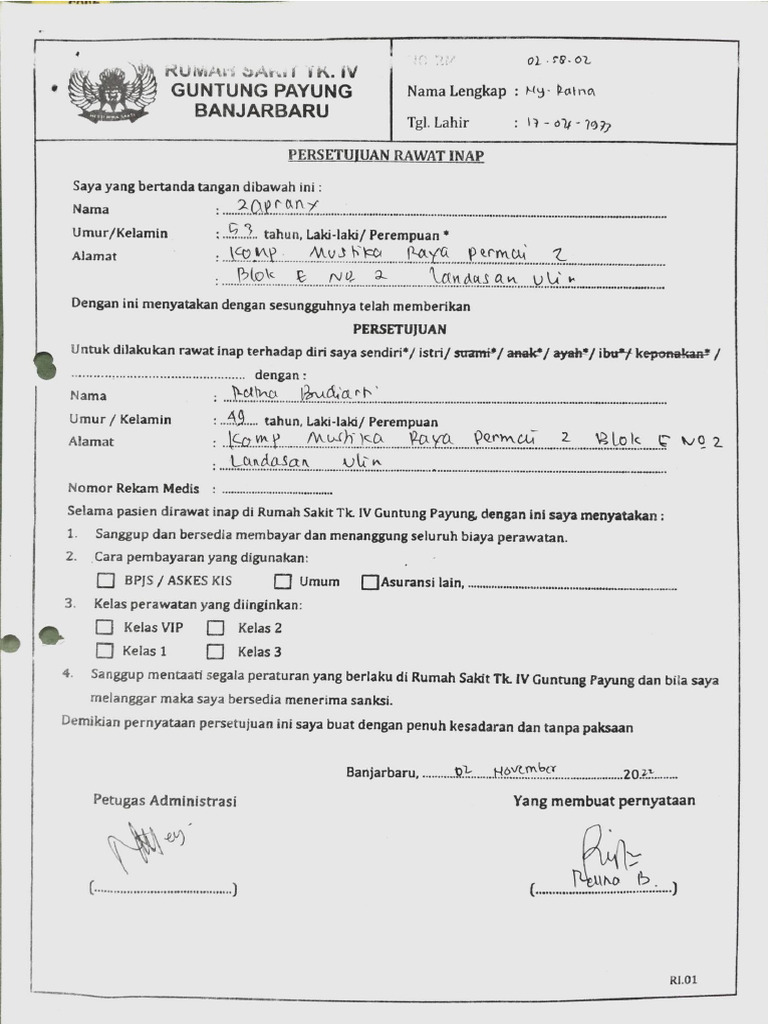 RUMAH SAKIT TK. IV
GUNTUNG PAYUNG
BANJARBARU
NO RM 02.58.02
Nama Lengkap : Ny. Ratna
Tgl. Lahir : 17-04-1973
PERSETUJUAN RAWAT INAP
Saya yang bertanda tangan dibawah ini :
Nama : Zaprany
Umur/Kelamin : 53 tahun, Laki-laki/ Perempuan *
Alamat : Komp. Mustika Raya Permai 2
: Blok E No 2 Landasan Ulin
Dengan ini menyatakan dengan sesungguhnya telah memberikan
PERSETUJUAN
Untuk dilakukan rawat inap terhadap diri saya sendiri*/ istri/ suami*/ anak*/ ayah*/ ibu*/ keponakan* /
dengan :
Nama : Ratna Budiarti
Umur / Kelamin : 49 tahun, Laki-laki/ Perempuan
Alamat : Komp Mustika Raya Permai 2 Blok E No 2
: Landasan Ulin
Nomor Rekam Medis :
Selama pasien dirawat inap di Rumah Sakit Tk. IV Guntung Payung, dengan ini saya menyatakan :
1. Sanggup dan bersedia membayar dan menanggung seluruh biaya perawatan.
2. Cara pembayaran yang digunakan:
BPJS / ASKES KIS Umum Asuransi lain,
3. Kelas perawatan yang diinginkan:
Kelas VIP Kelas 2
Kelas 1 Kelas 3
4. Sanggup mentaati segala peraturan yang berlaku di Rumah Sakit Tk. IV Guntung Payung dan bila saya
melanggar maka saya bersedia menerima sanksi.
Demikian pernyataan persetujuan ini saya buat dengan penuh kesadaran dan tanpa paksaan
Banjarbaru, 02 November 2022
Petugas Administrasi Yang membuat pernyataan
Ratna B.
RI.01